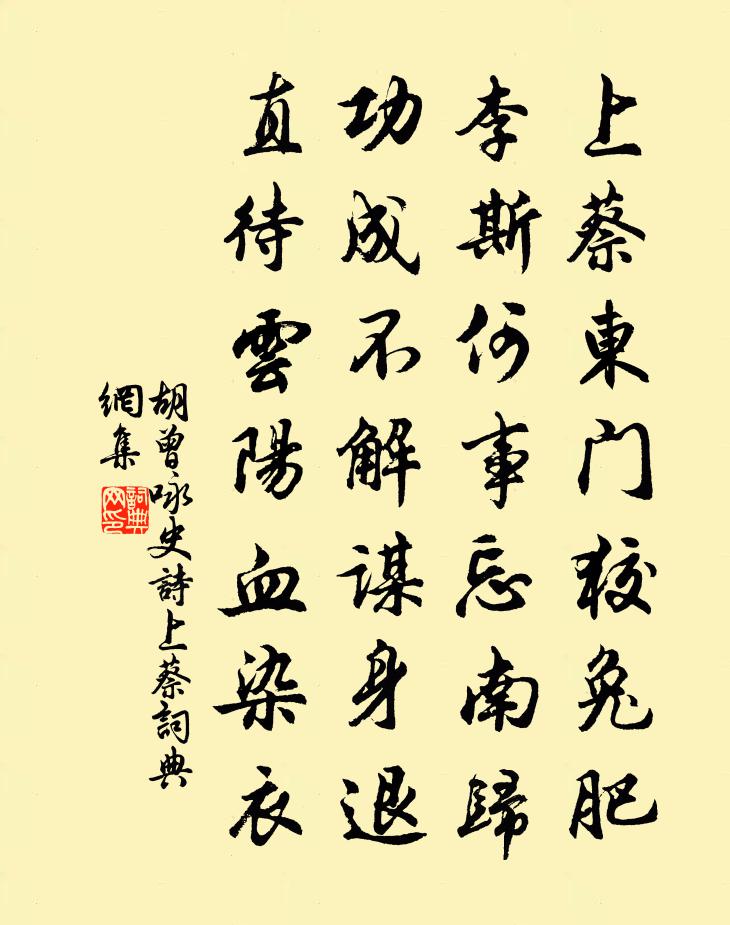 上蔡東门狡兔肥
李斯何事忘南歸
功成不解謀身退
直待雲陽血染衣
胡曾咏史詩上蔡詞典
網集
詞典网印